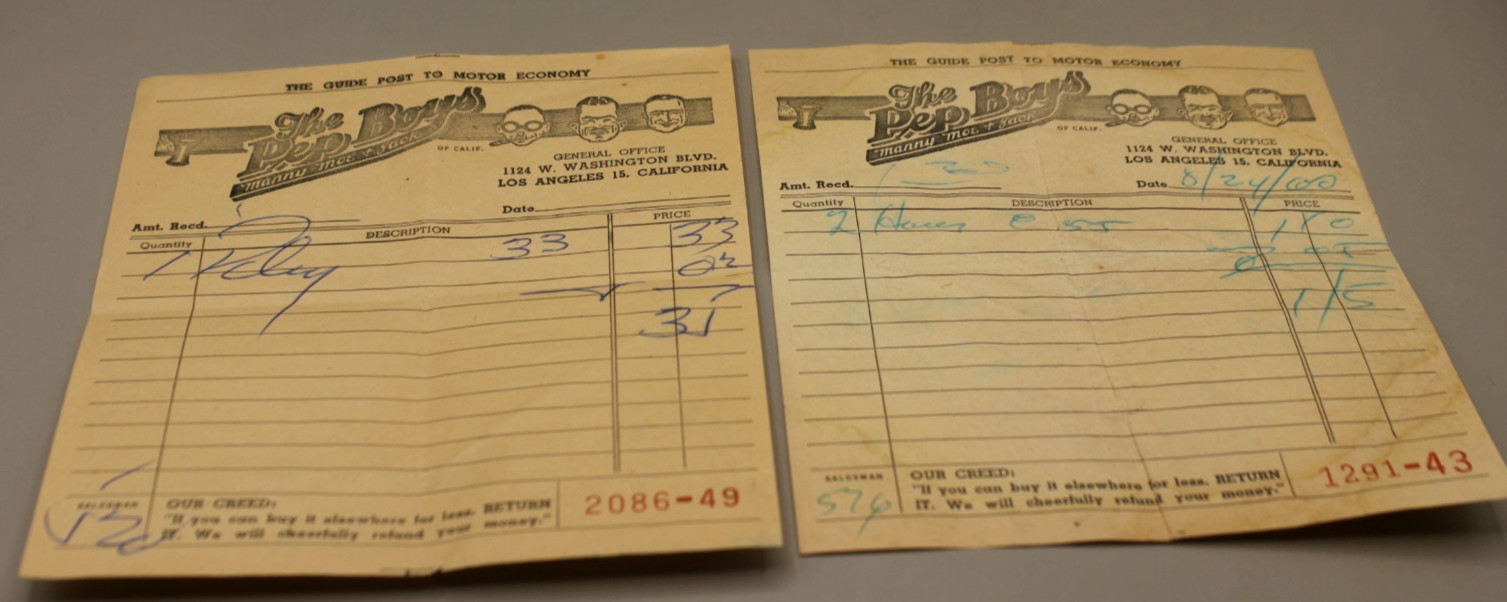 THE GUIDE POST TO MOTOR ECONOMY
The
Pep Boys
Manny Moe + Jack
OF CALIF.
GENERAL OFFICE
1124 W. WASHINGTON BLVD.
LOS ANGELES 15, CALIFORNIA
Amt. Recd.
Date
Quantity
DESCRIPTION
PRICE
1
33
33
SALESMAN
OUR CREED:
"If you can buy it elsewhere for less, RETURN
IT. We will cheerfully refund your money."
2086-49
THE GUIDE POST TO MOTOR ECONOMY
The
Pep Boys
Manny Moe + Jack
OF CALIF.
GENERAL OFFICE
1124 W. WASHINGTON BLVD.
LOS ANGELES 15, CALIFORNIA
Amt. Recd.
Date 8/24/60
Quantity
DESCRIPTION
PRICE
2
55
1 10
1 15
SALESMAN
576
OUR CREED:
"If you can buy it elsewhere for less, RETURN
IT. We will cheerfully refund your money."
1291-43